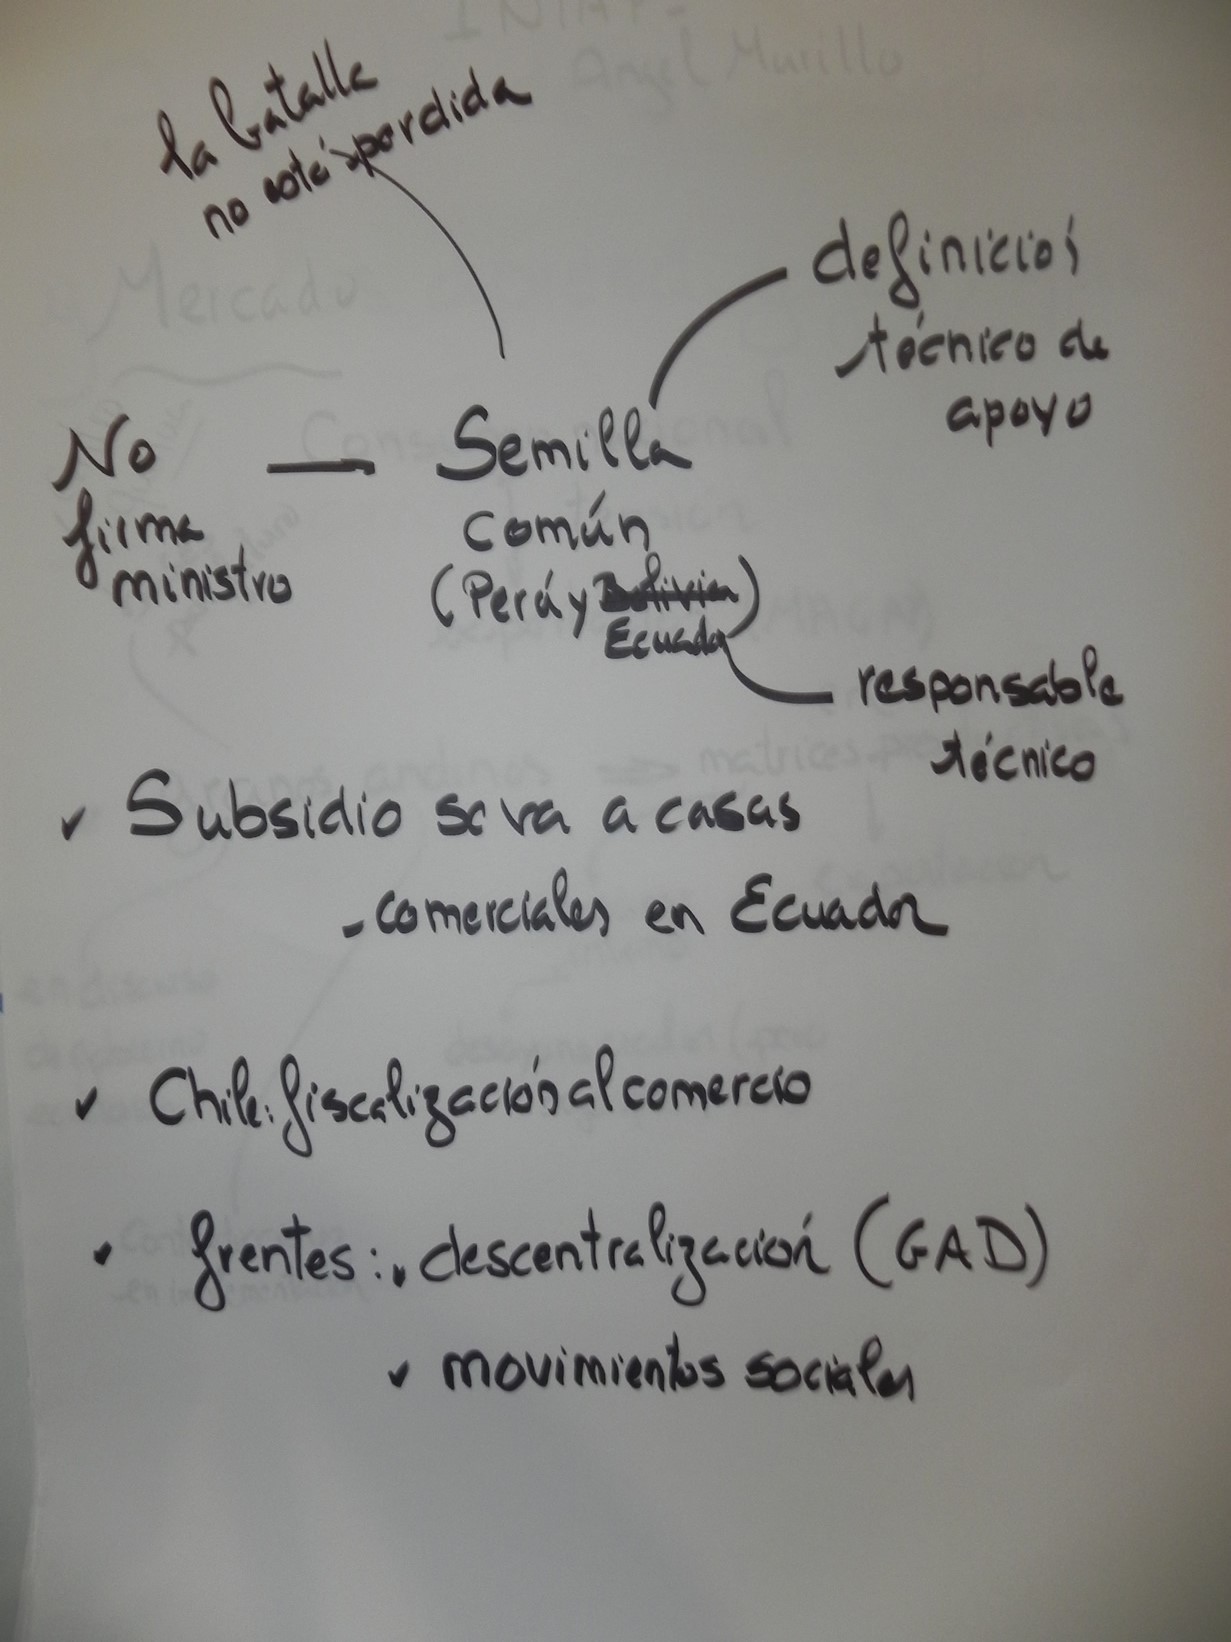 la batalla
no está perdida
definición
técnico de
apoyo
No
firma
ministro
Semilla
común
(Perú y Bolivia)
Ecuador
responsable
técnico
✓ Subsidio se va a casas
comerciales en Ecuador
✓ Chile: fiscalización al comercio
✓ frentes: ✓ descentralización (GAD)
✓ movimientos sociales
INIAP-
Angel Murillo
Mercado